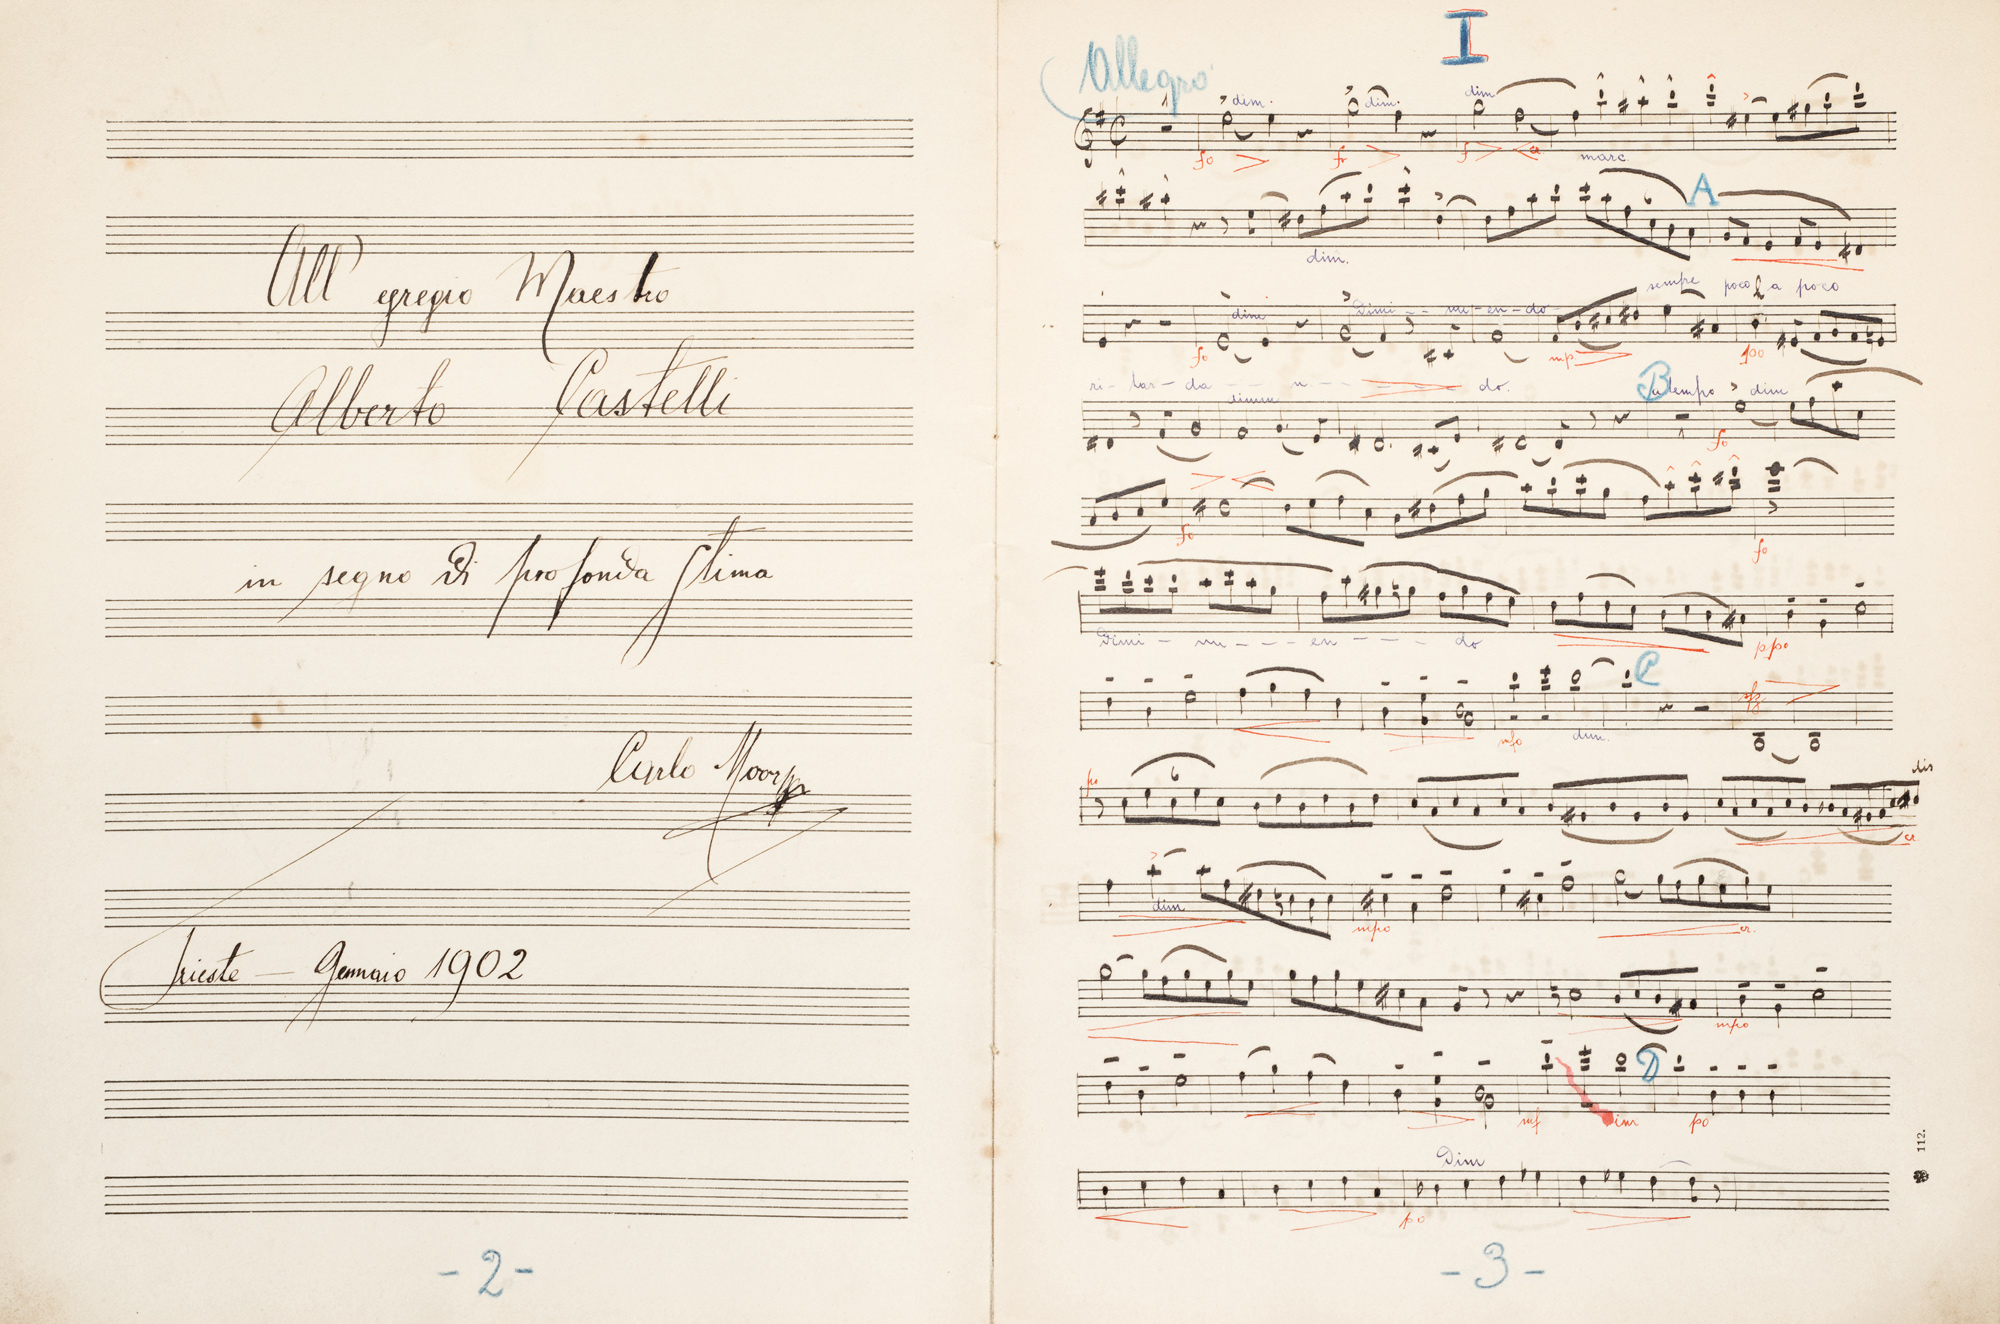 All' egregio Maestro
Alberto Castelli
in segno di profonda stima
Carlo
Trieste — Gennaio 1902
- 2 -
I
Allegro
dim. dim. dim
fo fr f marc.
6 A
dim.
sempre poco a poco
dim Dimi - - nu - en - do
fo mp. po
ri - tar - da - - n - - - do. B a tempo dim
fo
fo fo
Dimi - nu - - - en - - - - do ppo
C
mfo dim. sfz
po 6
cr
dim mpo cr.
mpo
D
mf dim po
Dim
po
112.
- 3 -